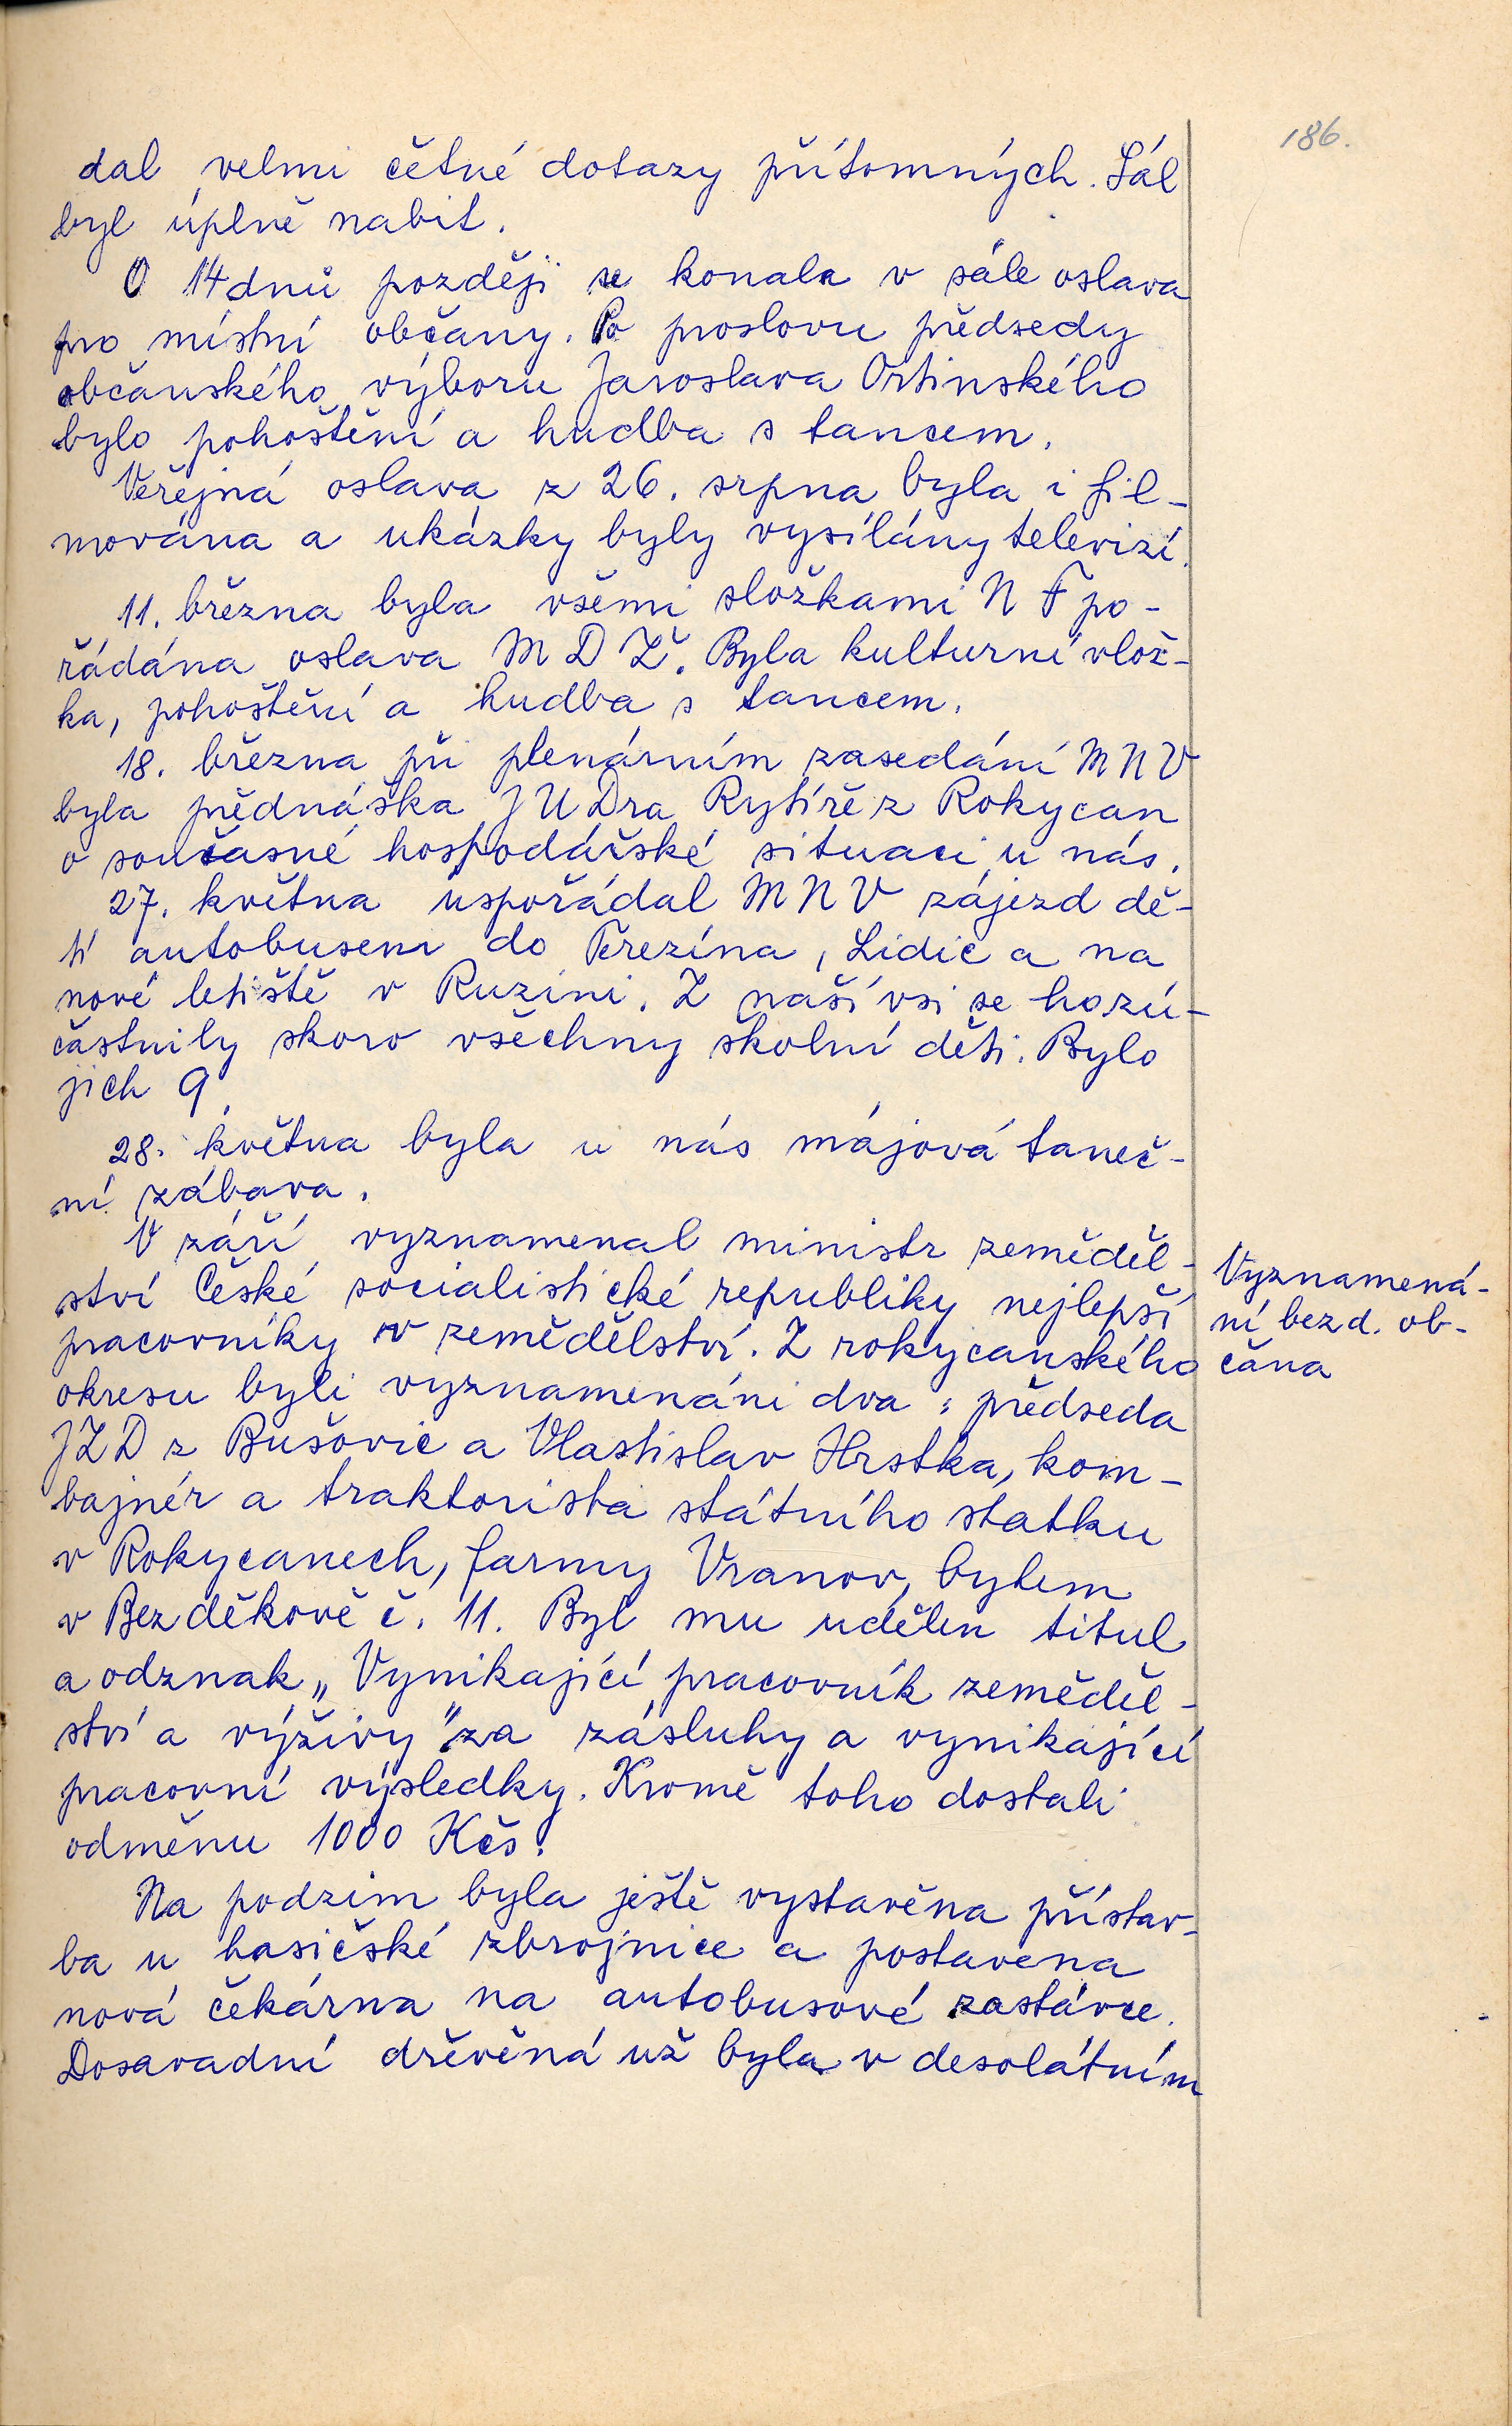 186.
dal velmi četné dotazy přítomných. Sál
byl úplně nabit.
O 14 dnů později se konala v sále oslava
pro místní občany. Po proslovu předsedy
občanského výboru Jaroslava Ortinského
bylo pohoštění a hudba s tancem.
Veřejná oslava z 26. srpna byla i fil-
mována a ukázky byly vysílány televizí.
11. března byla všemi složkami N F po-
řádána oslava M D Ž. Byla kulturní vlož-
ka, pohoštění a hudba s tancem.
18. března při plenárním zasedání M N V
byla přednáška J U Dra Rytíře z Rokycan
o současné hospodářské situaci u nás.
27. května uspořádal M N V zájezd dě-
tí autobusem do Terezína, Lidic a na
nové letiště v Ruzini. Z naší vsi se hozú-
častnily skoro všechny školní děti. Bylo
jich 9.
28. května byla u nás májová taneč-
ní zábava.
V září vyznamenal ministr zeměděl-
ství České socialistické republiky nejlepší
pracovníky v zemědělství. Z rokycanského
okresu byli vyznamenáni dva: předseda
JZD z Bušovic a Vlastislav Hrstka, kom-
bajnér a traktorista státního statku
v Rokycanech, farmy Vranov, bytem
v Bezděkově č. 11. Byl mu udělen titul
a odznak „Vynikající pracovník zeměděl-
ství a výživy" za zásluhy a vynikající
pracovní výsledky. Kromě toho dostali
odměnu 1000 Kčs.
Na podzim byla ještě vystavěna přístav-
ba u hasičské zbrojnice a postavena
nová čekárna na autobusové zastávce.
Dosavadní dřevěná už byla v desolátním
Vyznamená-
ní bezd. ob-
čana